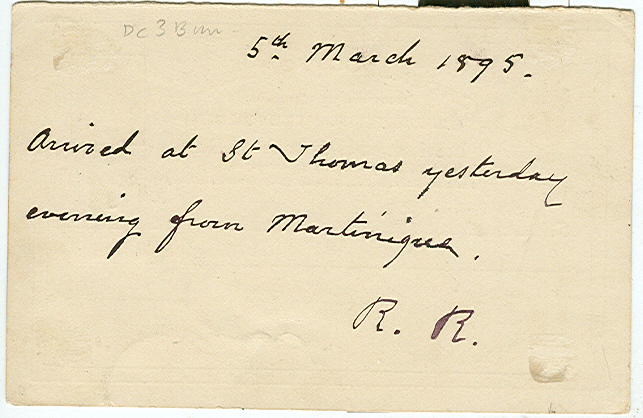 5th March 1895.
Arrived at St Thomas yesterday
evening from Martinique.
R. R.